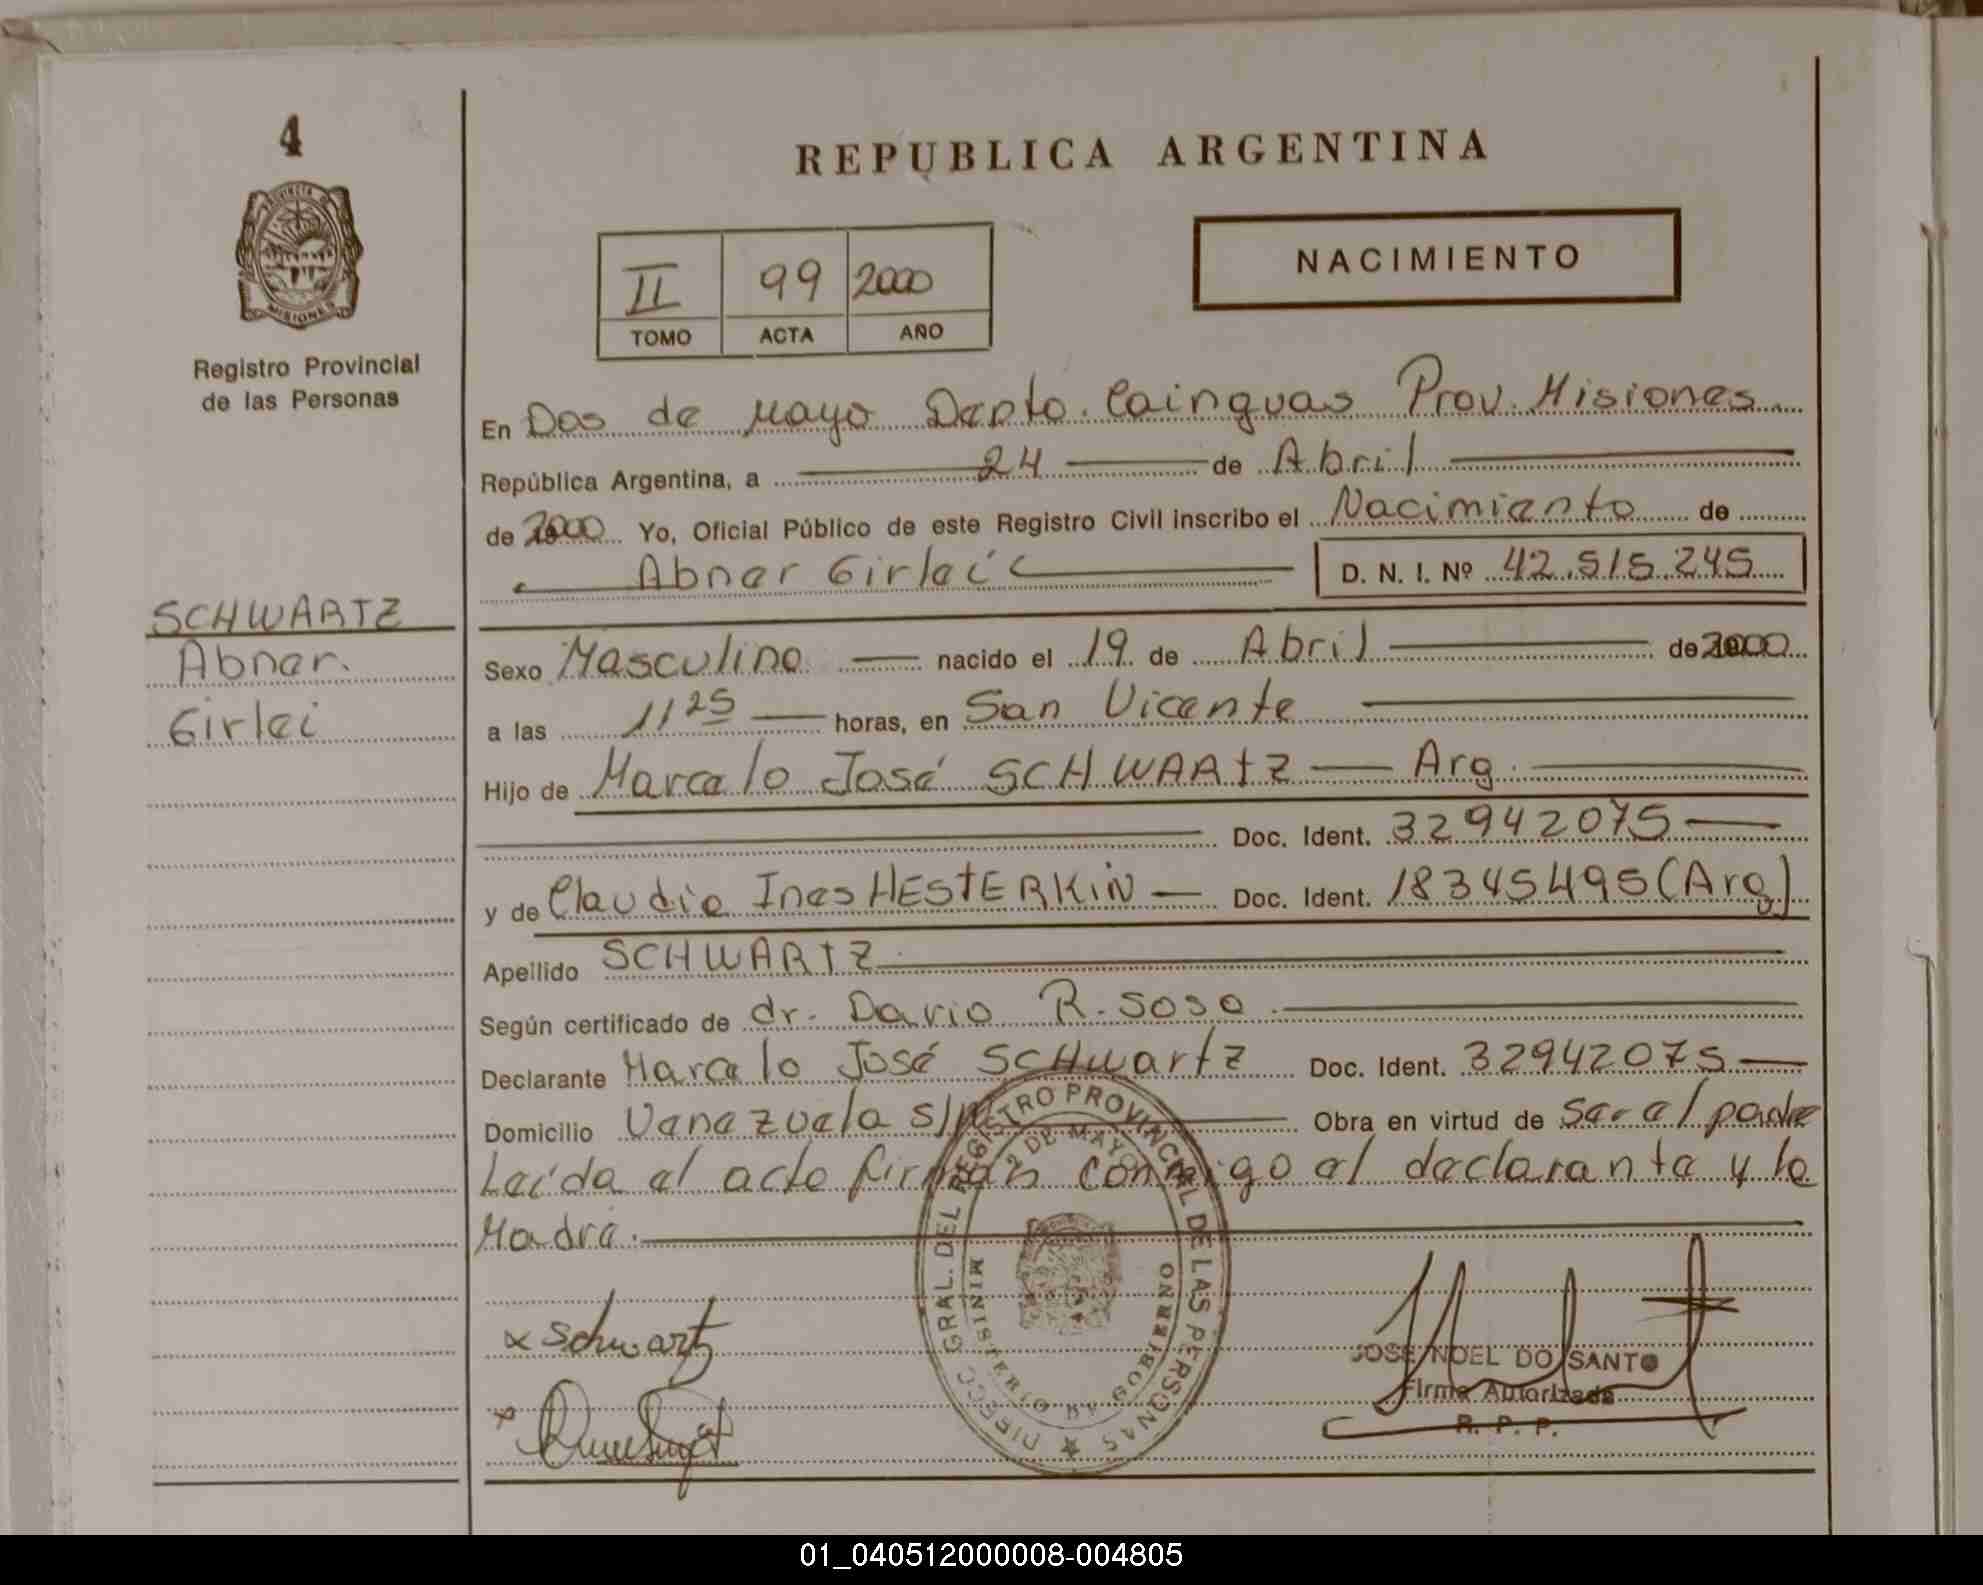 4
PROVINCIA DE
MISIONES
Registro Provincial
de las Personas
SCHWARTZ
Abner.
Girlei
REPUBLICA ARGENTINA
II 99 2000
TOMO ACTA AÑO
NACIMIENTO
En Dos de Mayo Depto. Cainguas Prov. Misiones
República Argentina, a 24 de Abril
de 2000 Yo, Oficial Público de este Registro Civil inscribo el Nacimiento de
Abner Girlei
D. N. I. Nº 42.515.245
Sexo Masculino nacido el 19 de Abril de 2000
a las 11 25 horas, en San Vicente
Hijo de Marcelo José SCHWARTZ — Arg.
Doc. Ident. 32942075 —
y de Claudia Ines HESTERKIN — Doc. Ident. 18345495 (Arg)
Apellido SCHWARTZ
Según certificado de dr. Dario R. Sosa
Declarante Marcelo José SCHwartz Doc. Ident. 32942075 —
Domicilio Venezuela s/n Obra en virtud de ser el padre
Leída el acta firman conmigo el declarante y la
Madre.
DIRECC. GRAL. DEL REGISTRO PROVINCIAL DE LAS PERSONAS
2 DE MAYO
MINISTERIO DE GOBIERNO
x Schwartz
x
JOSE NOEL DO SANTO
Firma Autorizada
R. P. P.
01_040512000008-004805